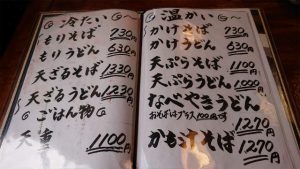 冷たい
もりそば 730円
もりうどん 630円
天ざるそば 1330円
天ざるうどん 1230円
ごはん物
天重 1100円
温かい
かけそば 730円
かけうどん 630円
天ぷらそば 1100円
天ぷらうどん 1000円
なべやきうどん
おそばはプラス100円です
1270円
かも汁そば 1270円